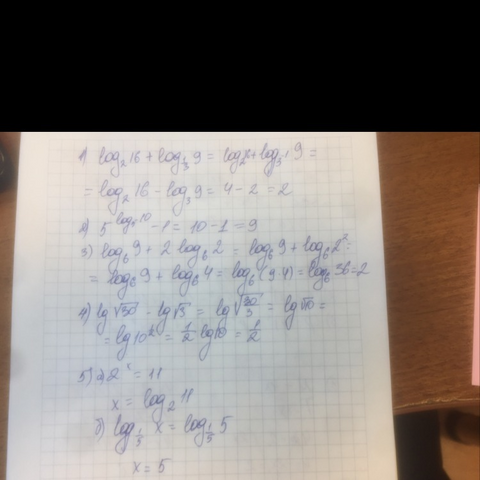 1) log₂16 + log_{1/3} 9 = log₂2⁴ + log_{3⁻¹} 9 =
= log₂ 16 - log₃ 9 = 4 - 2 = 2
2) 5^{log₅10} - 1 = 10 - 1 = 9
3) log₆9 + 2 log₆2 = log₆9 + log₆2² =
= log₆9 + log₆4 = log₆(9·4) = log₆36 = 2
4) lg√30 - lg√3 = lg√(30/3) = lg√10 =
= lg10^{1/2} = 1/2 lg10 = 1/2
5) а) 2ˣ = 11
x = log₂ 11
б) log_{1/3} x = log_{1/3} 5
x = 5